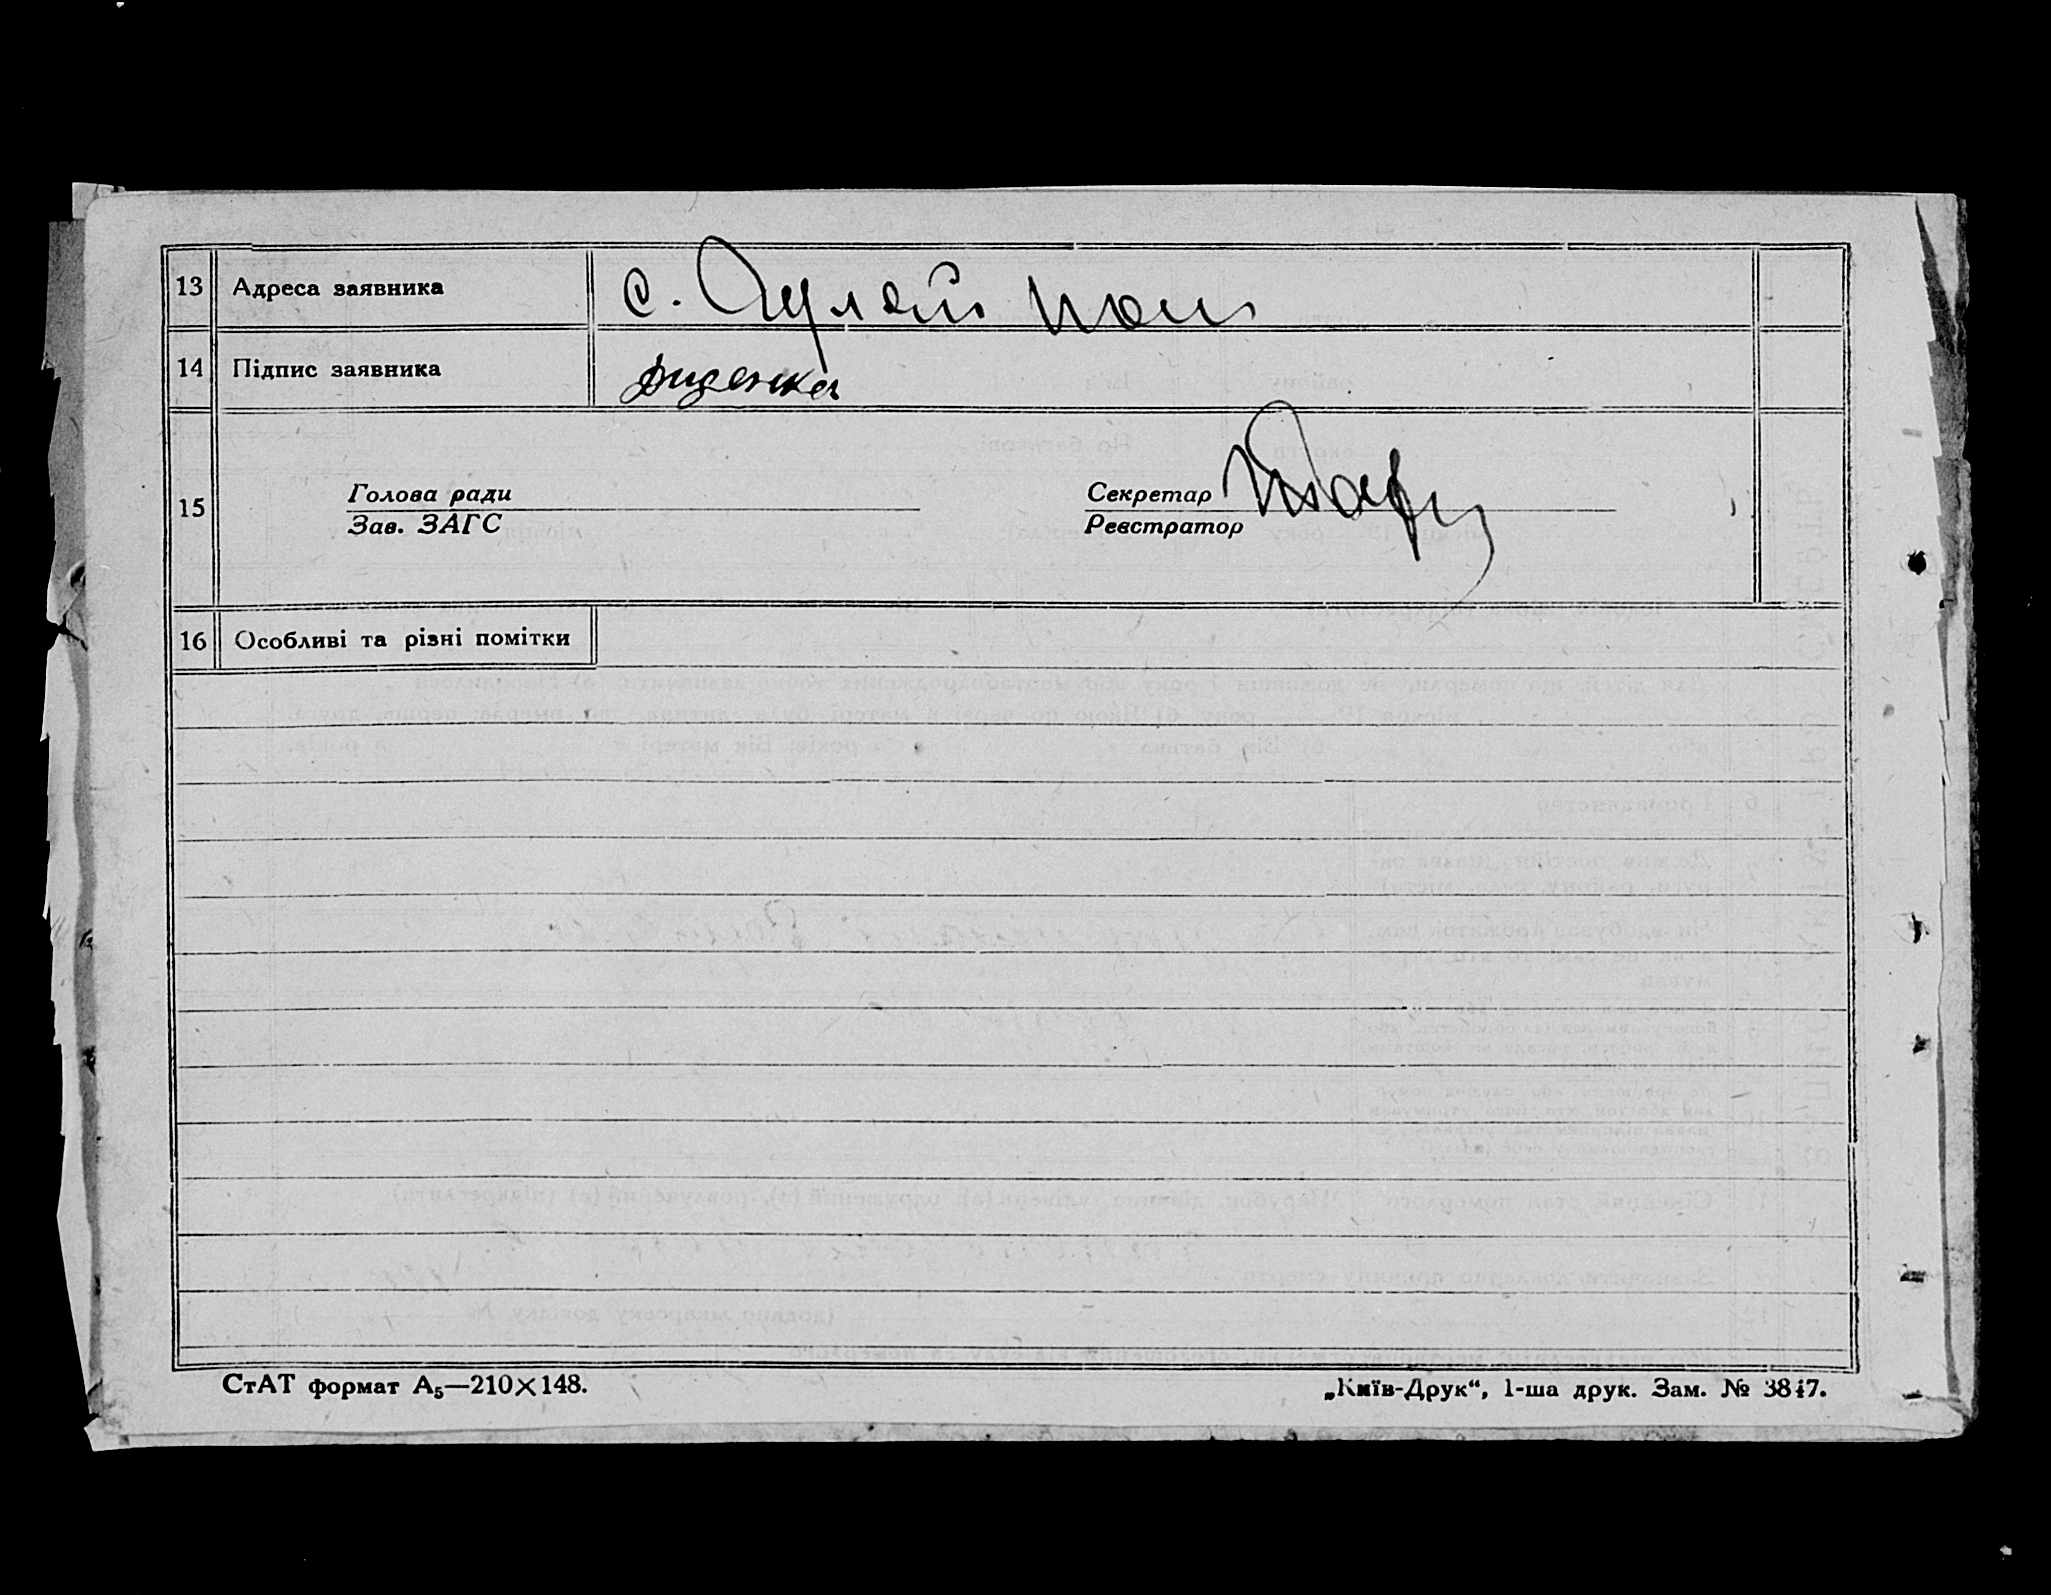 13 Адреса заявника с. Гуляй Поле
14 Підпис заявника Диденко
15 Голова ради Секретар
Зав. ЗАГС Реєстратор
16 Особливі та різні помітки
СтАТ формат А₅—210×148. „Київ-Друк“, 1-ша друк. Зам. № 3847.